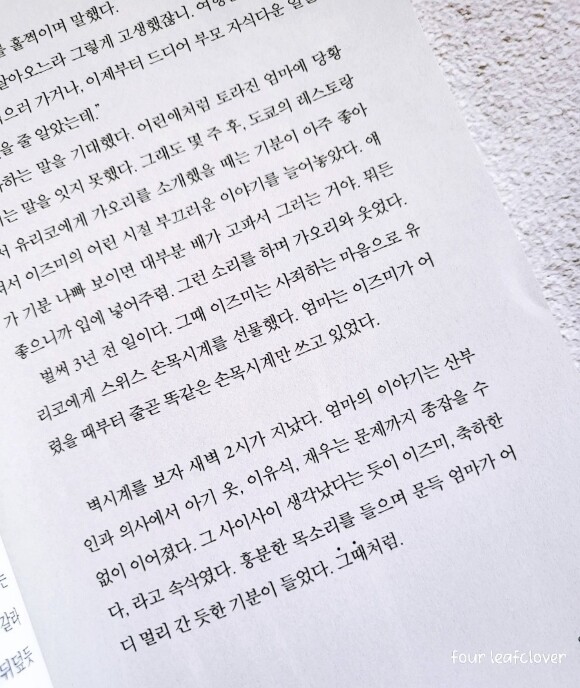 를 훌쩍이며 말했다.
살아오느라 그렇게 고생했잖니. 여행
으러 가거나, 이제부터 드디어 부모 자식다운 일을
을 줄 알았는데."
하는 말을 기대했다. 어린애처럼 토라진 엄마에 당황
는 말을 잇지 못했다. 그래도 몇 주 후, 도쿄의 레스토랑
서 유리코에게 가오리를 소개했을 때는 기분이 아주 좋아
져서 이즈미의 어린 시절 부끄러운 이야기를 늘어놓았다. 얘
가 기분 나빠 보이면 대부분 배가 고파서 그러는 거야. 뭐든
좋으니까 입에 넣어주렴. 그런 소리를 하며 가오리와 웃었다.
벌써 3년 전 일이다. 그때 이즈미는 사죄하는 마음으로 유
리코에게 스위스 손목시계를 선물했다. 엄마는 이즈미가 어
렸을 때부터 줄곧 똑같은 손목시계만 쓰고 있었다.
벽시계를 보자 새벽 2시가 지났다. 엄마의 이야기는 산부
인과 의사에서 아기 옷, 이유식, 재우는 문제까지 종잡을 수
없이 이어졌다. 그 사이사이 생각났다는 듯이 이즈미, 축하한
다, 라고 속삭였다. 흥분한 목소리를 들으며 문득 엄마가 어
디 멀리 간 듯한 기분이 들었다. 그때처럼.
는
갈라
뒤덮듯
four leafclover